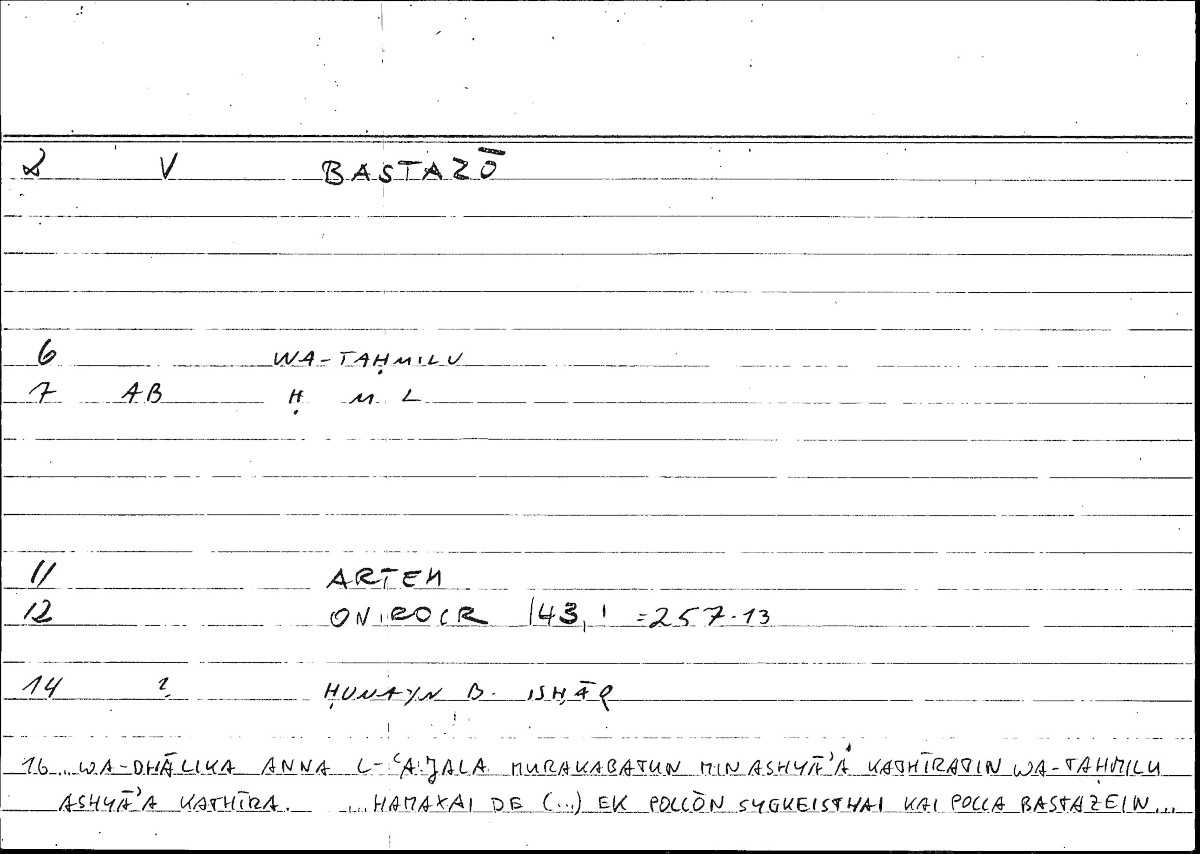 2 V BASTAZŌ
6 WA-TAḤMILU
7 AB Ḥ M L
11 ARTEM
12 ONIROCR 143,1 =257.13
14 ? ḤUNAYN B. ISḤĀQ
16 ..WA-DHĀLIKA ANNA L-ʿAJALA MURAKABATUN MIN ASHYĀʾA KATHĪRATIN WA-TAḤMILU
ASHYĀʾA KATHĪRA. ...HAMAXAI DE (...) EK POLLŌN SYGKEISTHAI KAI POLLA BASTAZEIN...